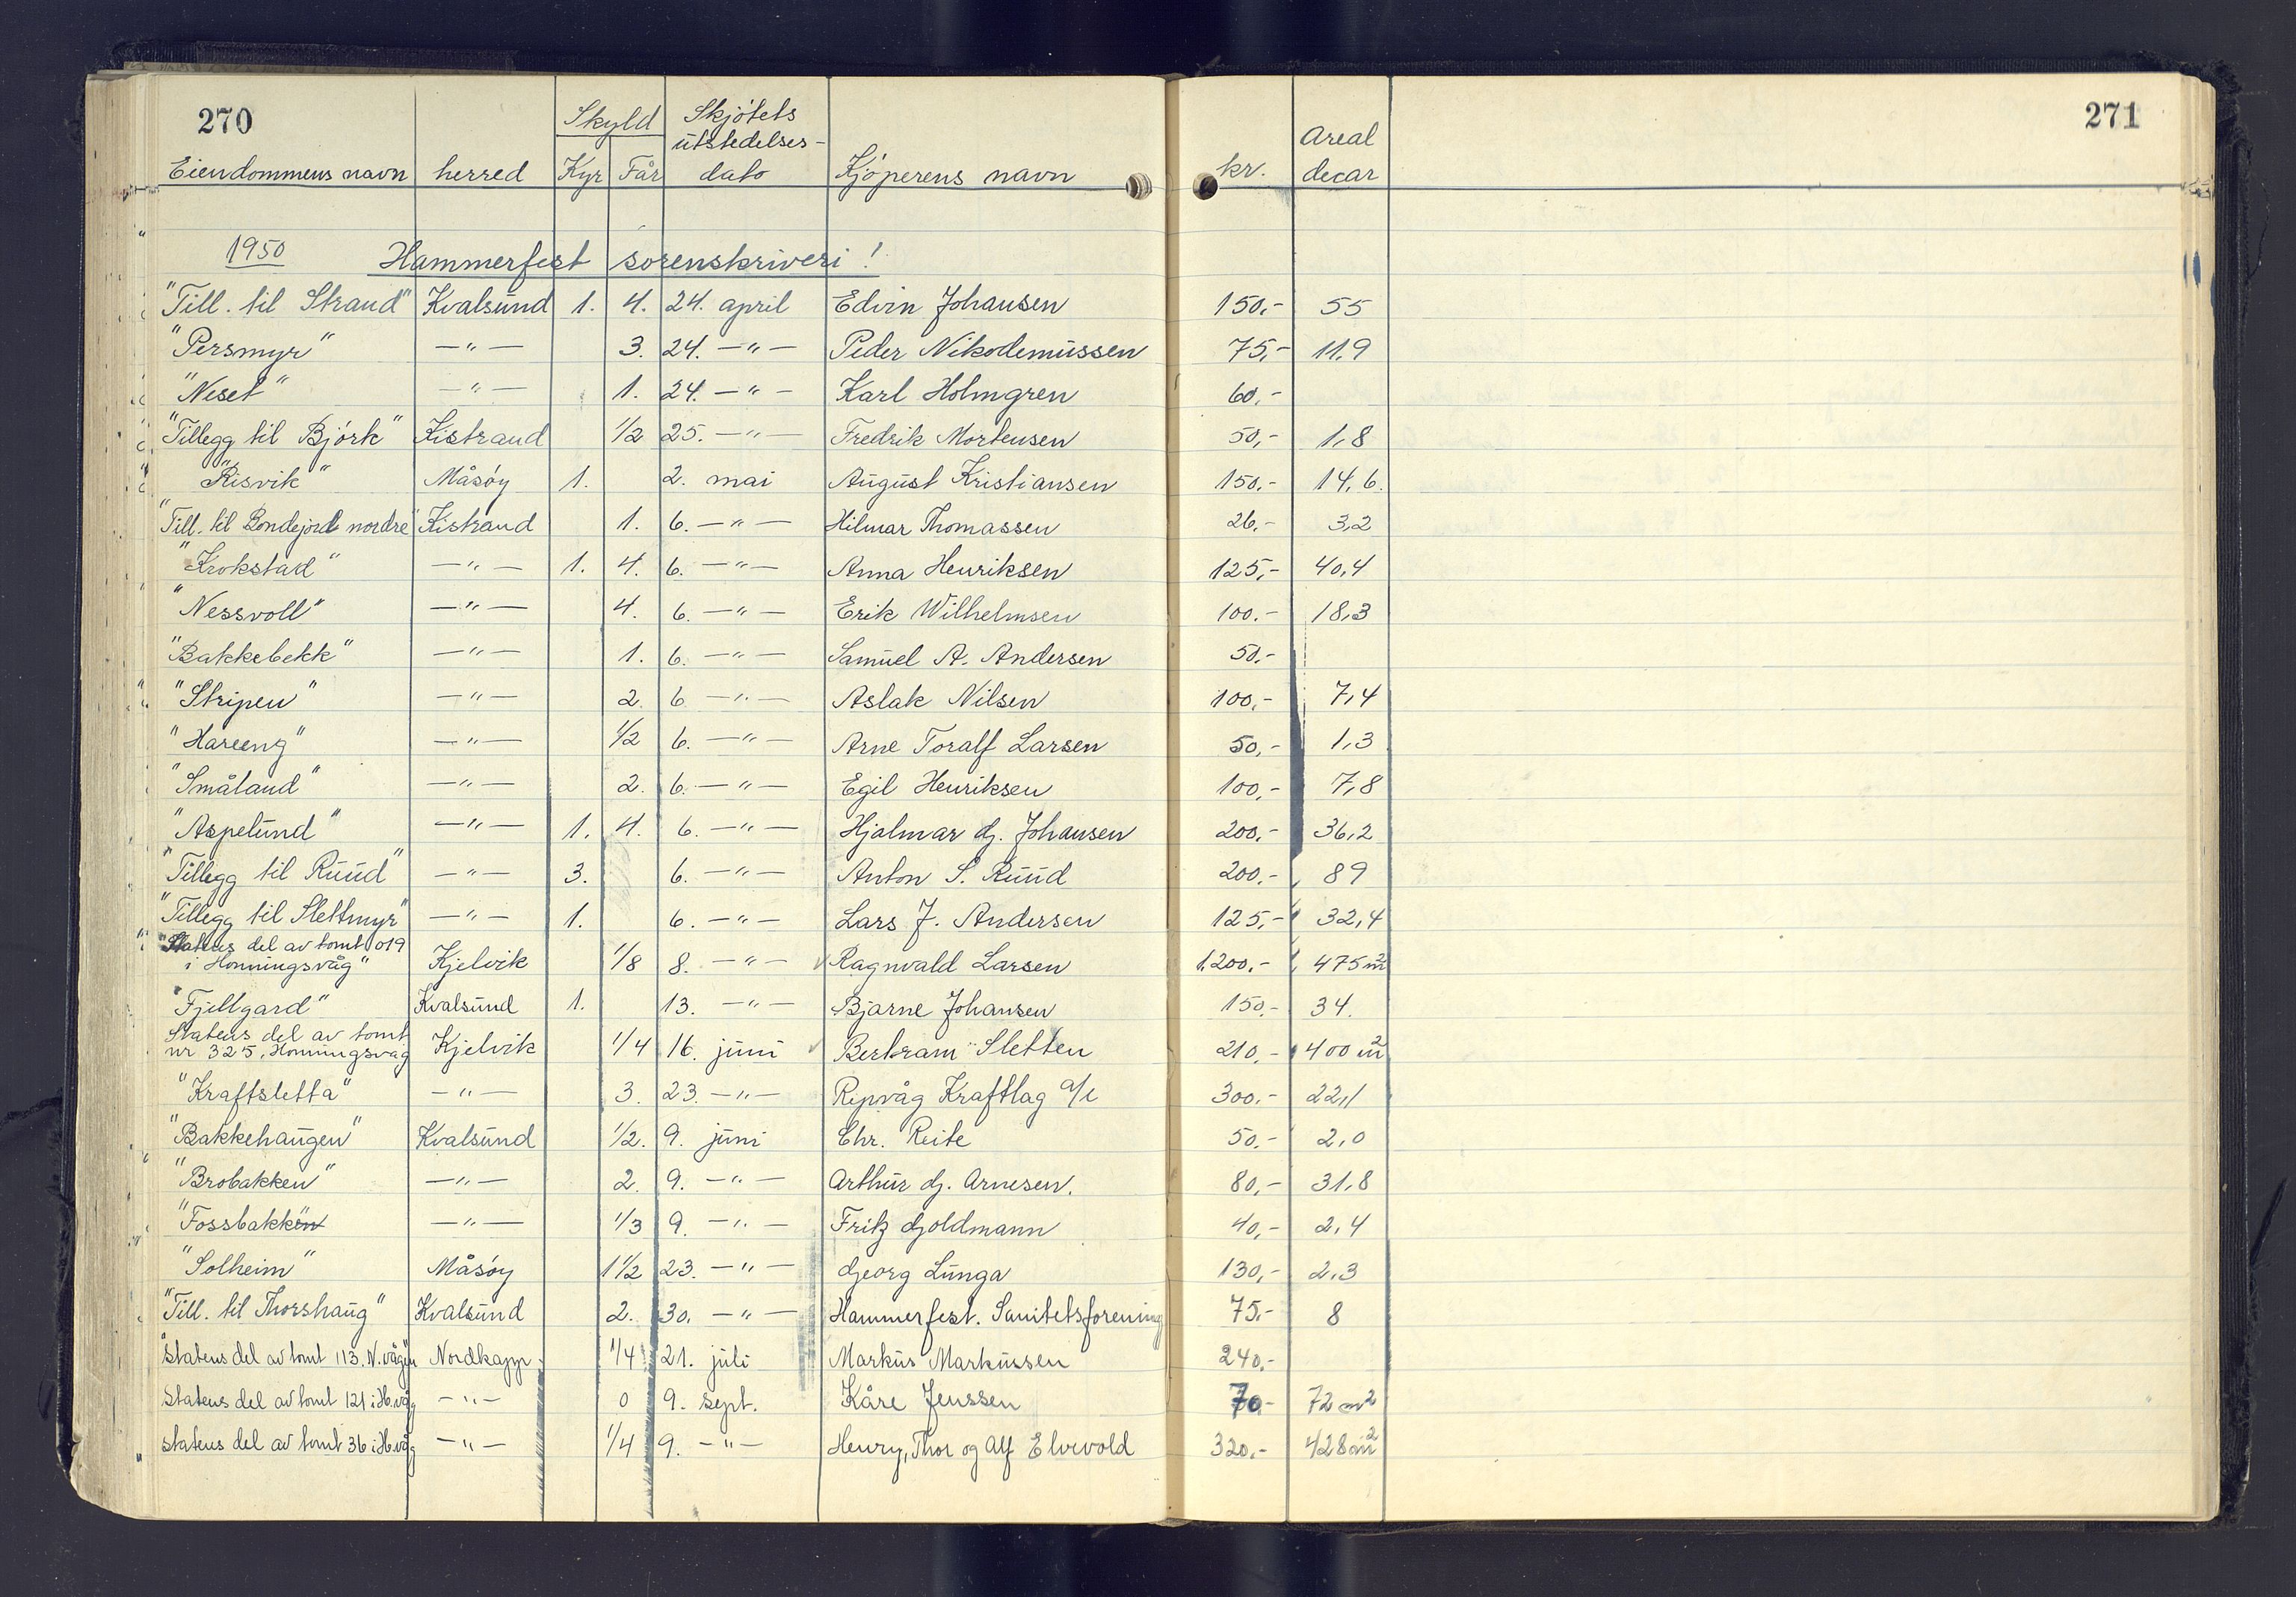 270
271
Eiendommens navn herred Skyld Kyr Får Skjøtets utstedelses-dato Kjøperens navn kr. Areal decar
1950 Hammerfest sorenskriveri!
"Till. til Strand" Kvalsund 1. 4. 24. april Edvin Johansen 150,- 55
"Persmyr" —"— 3. 24. —"— Peder Nikodemussen 75,- 11,9
"Neset" —"— 1. 24. —"— Karl Holmgren 60,-
"Tillegg til Bjørk" Kistrand 1/2 25. —"— Fredrik Mortensen 50,- 1,8
"Risvik" Måsøy 1. 2. mai August Kristiansen 150.- 14,6.
"Till. til Bondejord nordre" Kistrand 1. 6. —"— Hilmar Thomassen 26.- 3,2
"Krokstad" —"— 1. 4. 6. —"— Anna Henriksen 125,- 40,4
"Nessvoll" —"— 4. 6. —"— Erik Wilhelmsen 100.- 18,3
"Bakkebekk" —"— 1. 6. —"— Samuel A. Andersen 50.-
"Stripen" —"— 2. 6 —"— Aslak Nilsen 100,- 7,4
"Hareeng" —"— 1/2 6. —"— Arne Toralf Larsen 50,- 1,3
"Småland" —"— 2. 6. —"— Egil Henriksen 100,- 7,8
"Aspelund" —"— 1. 4. 6. —"— Hjalmar G. Johansen 200,- 36,2
"Tillegg til Ruud" —"— 3. 6. —"— Anton S. Ruud 200.- 89
"Tillegg til Slettmyr" —"— 1. 6. —"— Lars J. Andersen 125,- 32,4
"Statens del av tomt 019
i Honningsvåg" Kjelvik 1/8 8. —"— Ragnvald Larsen 1.200,- 475 m²
"Fjellgard" Kvalsund 1. 13. —"— Bjarne Johansen 150.- 34.
Statens del av tomt
nr 325, Honningsvåg Kjelvik 1/4 16. juni Bertram Sletten 210,- 400 m²
"Kraftsletta" —"— 3. 23. —"— Repvåg Kraftlag a/l 300.- 22,1
"Bakkehaugen" Kvalsund 1/2. 9. juni Chr. Reite 50.- 2,0
"Brobakken" —"— 2. 9. —"— Arthur G. Arnesen. 80,- 31,8
"Fossbakken" —"— 1/3 9. —"— Fritz Goldmann 40,- 2,4
"Solheim" Måsøy 1 1/2 23. —"— Georg Lunga 130,- 2,3
"Till. til Thorshaug" Kvalsund 2. 30. —"— Hammerfest. Sanitetsforening 75,- 8
Statens del av tomt 113, N.vågen Nordkapp 1/4 21. juli Markus Markussen 240.-
Statens del av tomt 121 i H.våg —"— 0 9. sept. Kåre Jenssen 70- 72 m²
Statens del av tomt 36 i H.våg —"— 1/4 9. —"— Henry, Thor og Alf Elvevold 320.- 428 m²